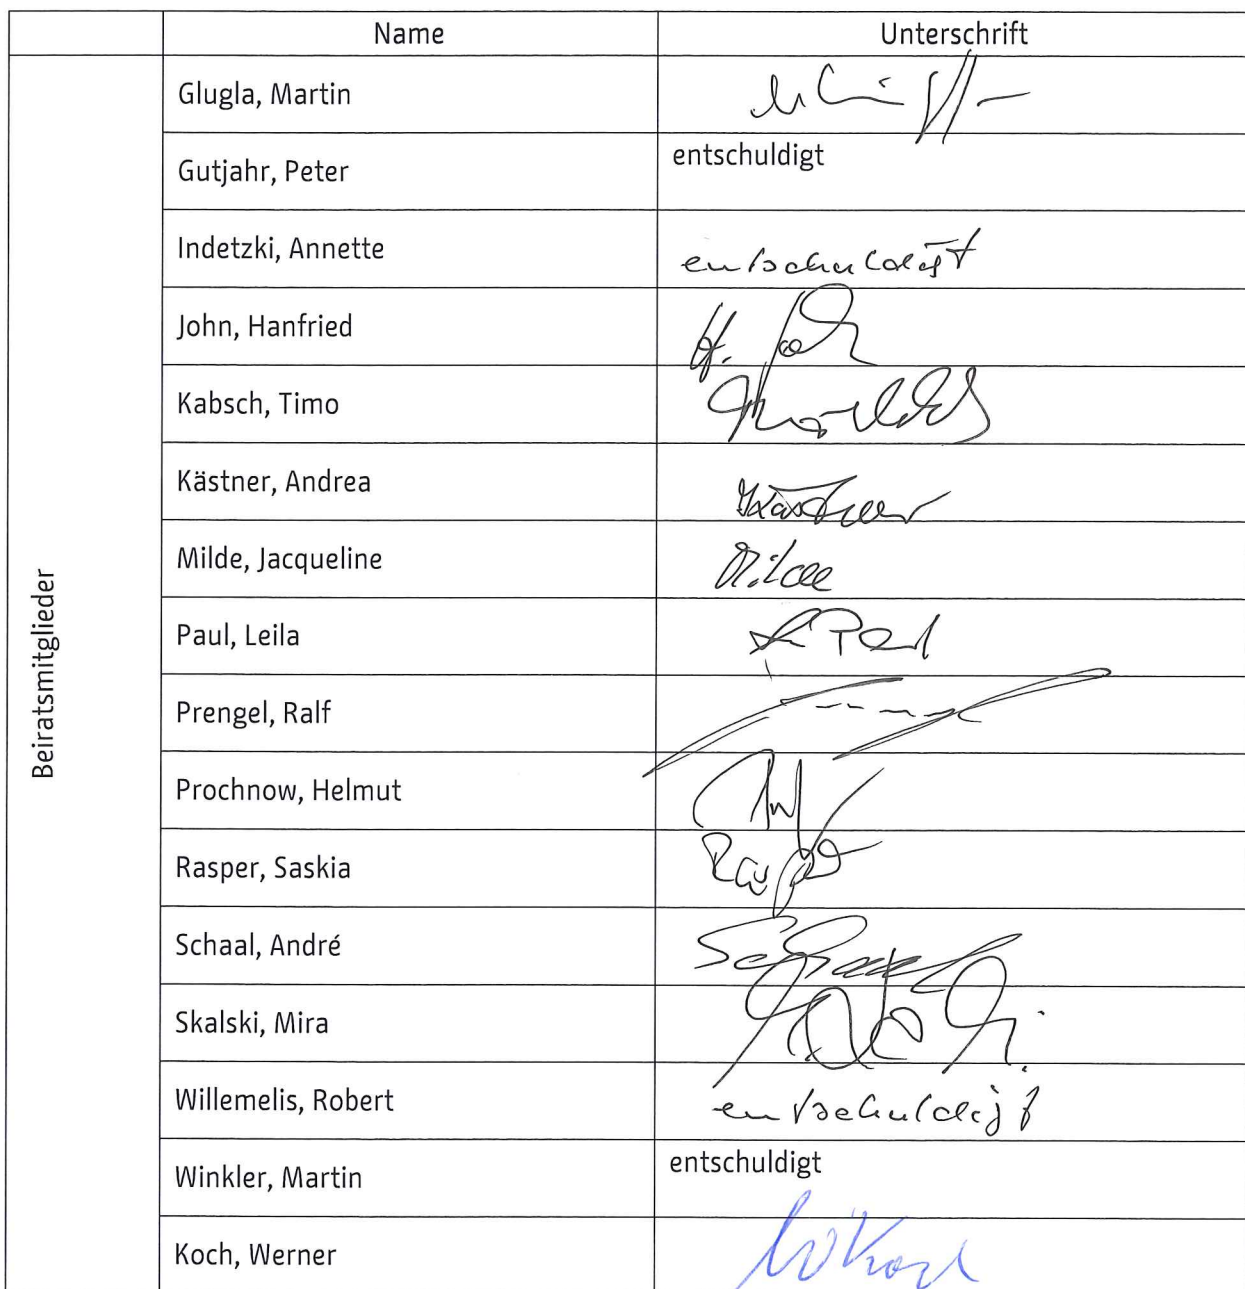 Name Unterschrift
Glugla, Martin
Gutjahr, Peter entschuldigt
Indetzki, Annette entschuldigt
John, Hanfried H. John
Kabsch, Timo
Kästner, Andrea Kästner
Milde, Jacqueline Milde
Paul, Leila L. Paul
Prengel, Ralf
Prochnow, Helmut
Rasper, Saskia
Schaal, André Schaal
Skalski, Mira
Willemelis, Robert entschuldigt
Winkler, Martin entschuldigt
Koch, Werner W Koch
Beiratsmitglieder